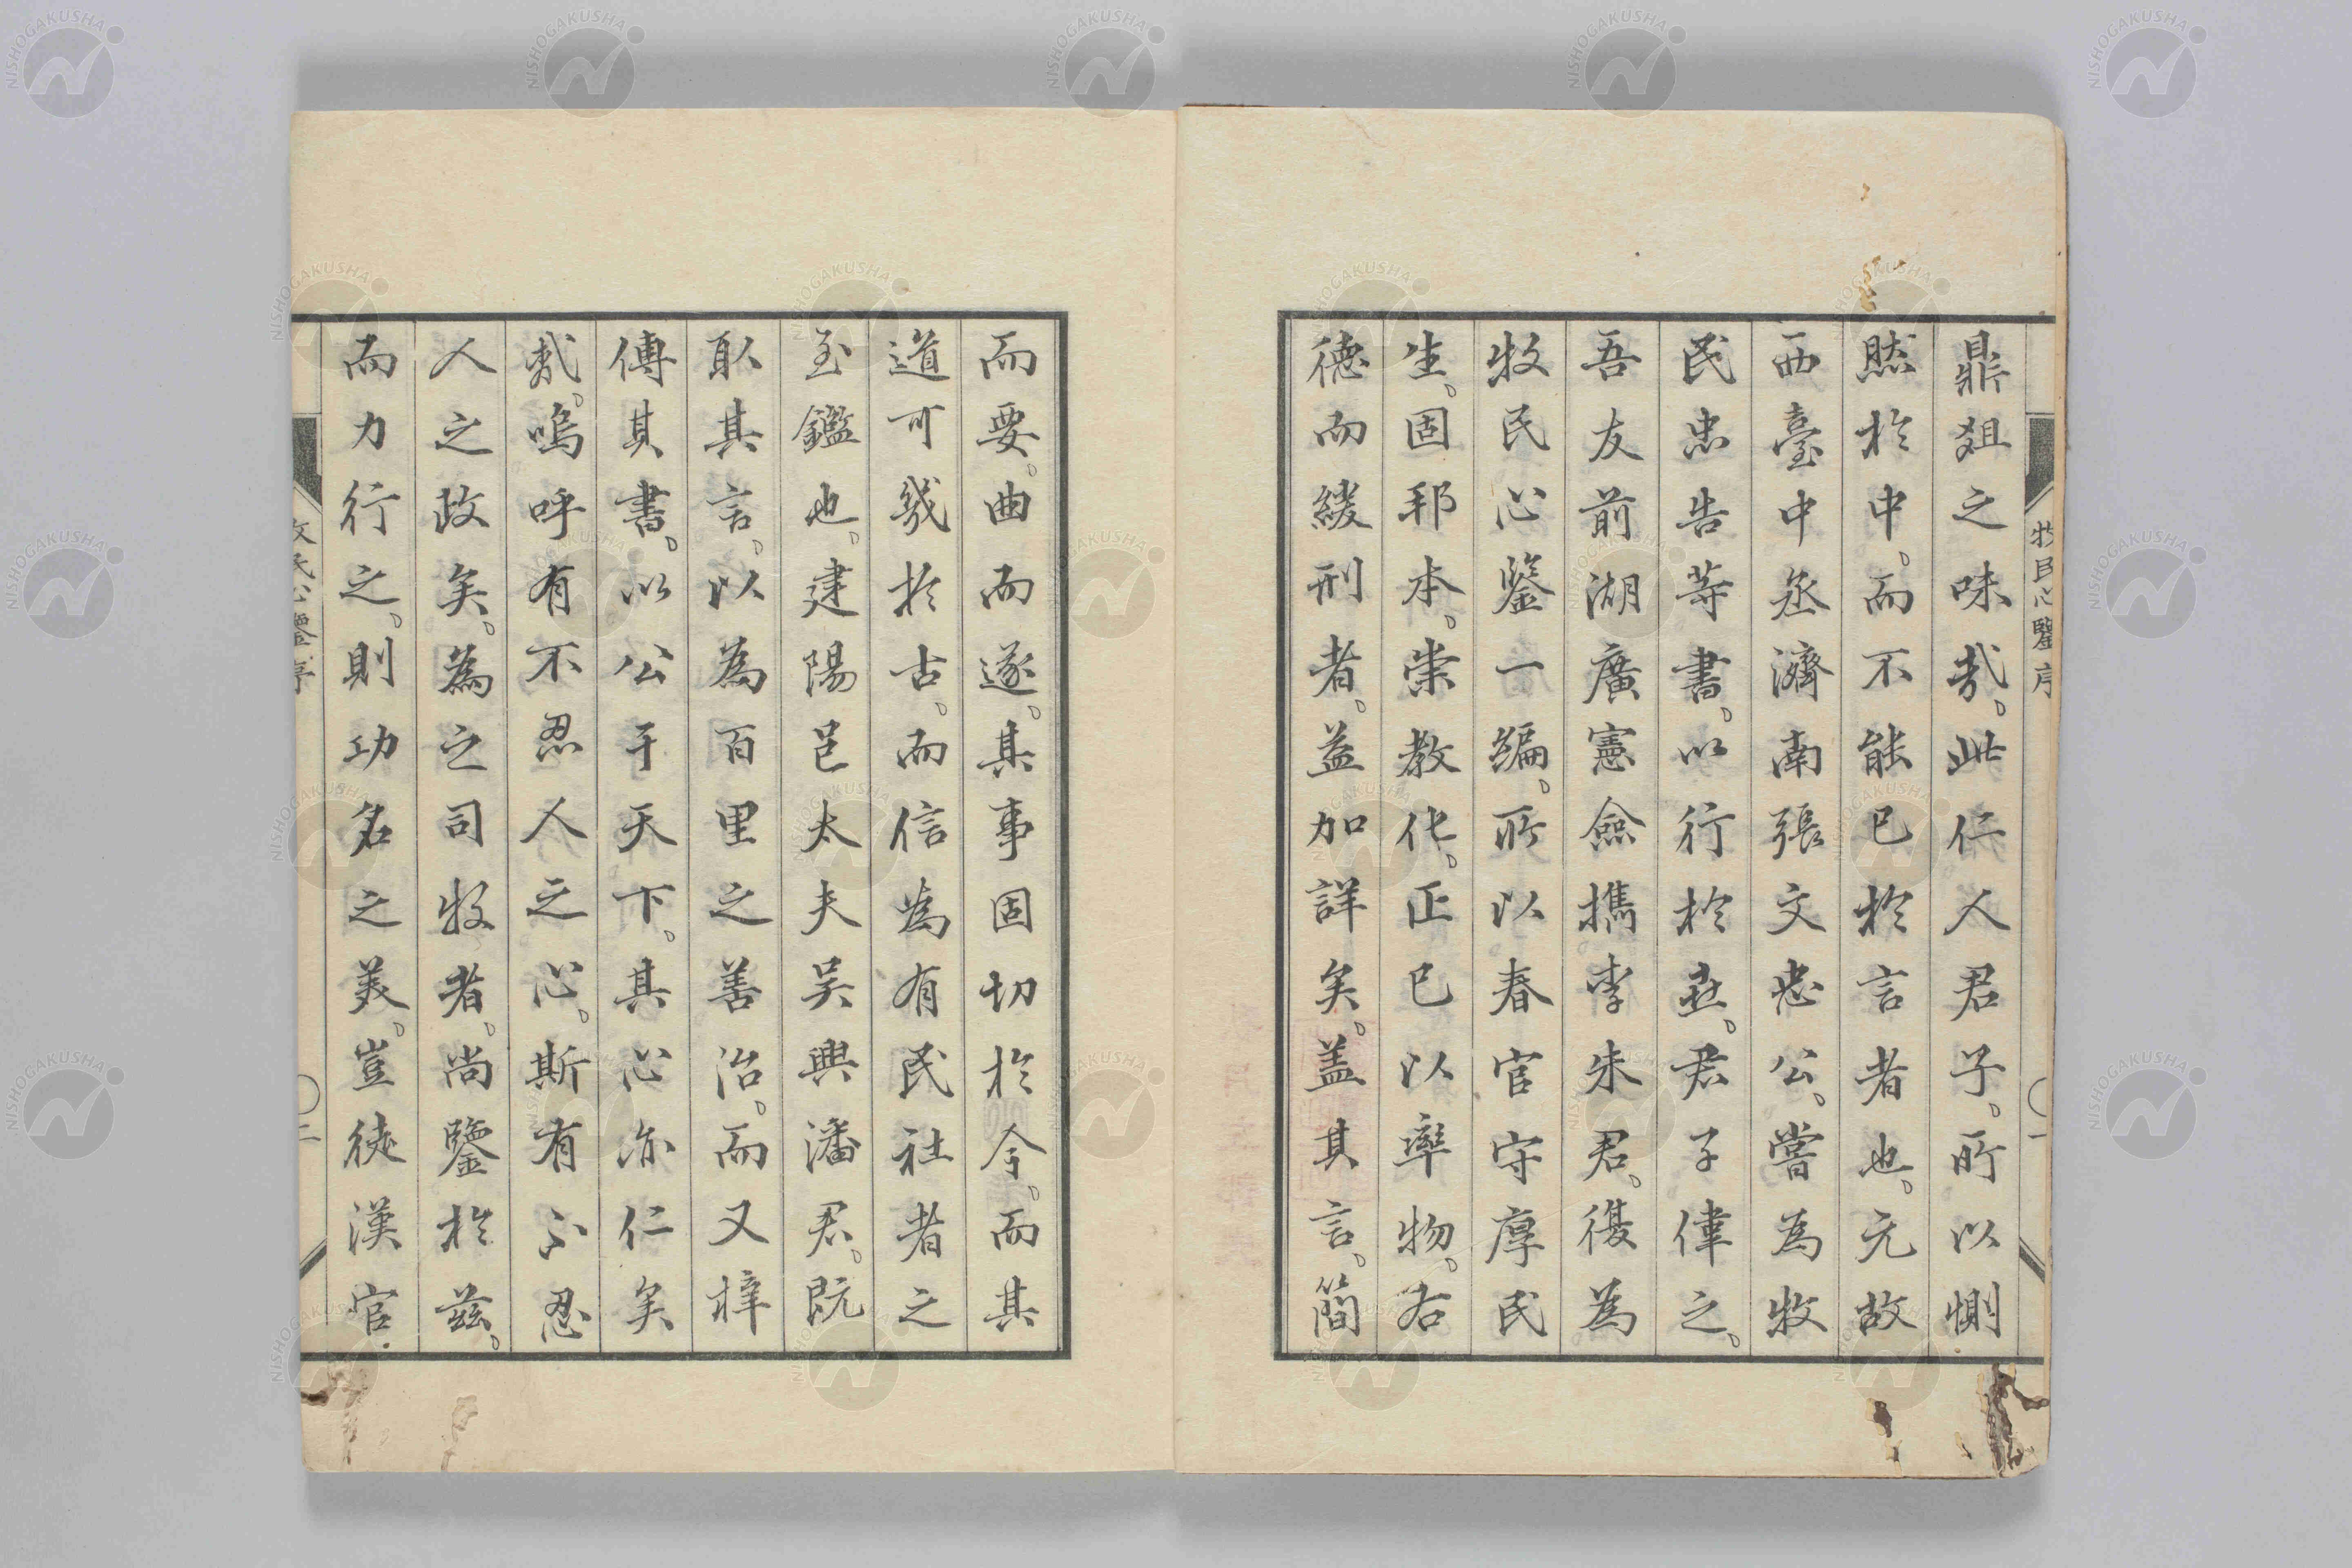 牧民心鑒序
一
鼎俎之味哉。此仁人君子。所以惻
然於中。而不能已於言者也。元故
西臺中丞濟南張文忠公。嘗為牧
民忠告等書。以行於世。君子偉之。
吾友前湖廣憲僉檇李朱君。復為
牧民心鑒一編。所以春官守厚民
生。固邦本。崇教化。正己以率物。右
德而緩刑者。益加詳矣。蓋其言。簡
而要。曲而遂。其事固切於今。而其
道可幾於古。而信為有民社者之
至鑑也。建陽邑大夫吴興潘君。既
取其言。以為百里之善治。而又梓
傳其書。以公于天下。其心亦仁矣
哉。嗚呼有不忍人之心。斯有不忍
人之政矣。為之司牧者。尚鑒於茲。
而力行之。則功名之美。豈徒漢官
牧民心鑒序
二
NISHOGAKUSHA